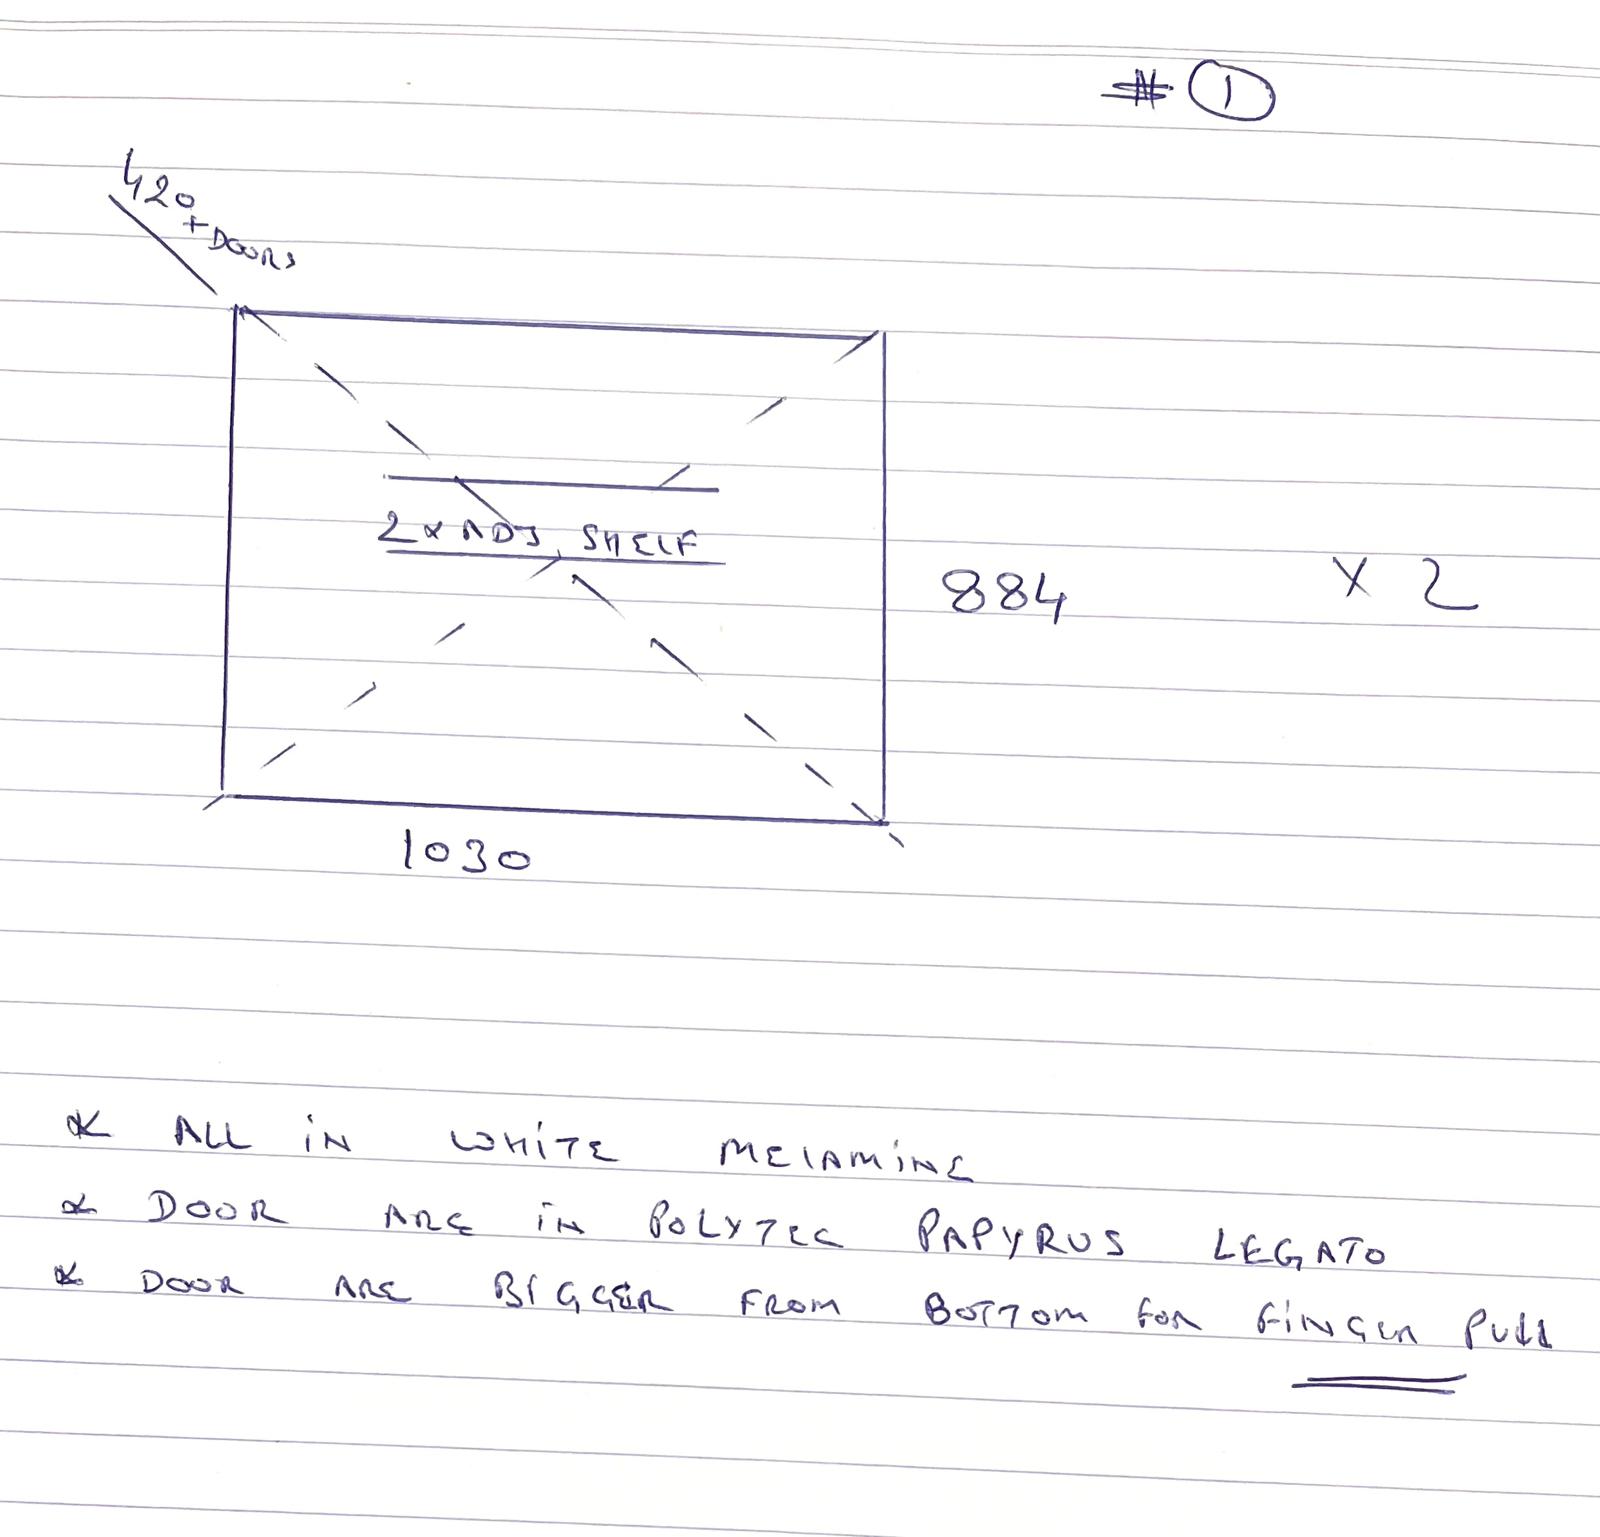 # 1
420
+ DOORS
2 x ADJ. SHELF
884
x 2
1030
* ALL iN WHiTE MELAMiNE
* DOOR ARE iN POLYTEC PAPYRUS LEGATO
* DOOR ARE BIGGER FROM BOTTOM FOR FiNGER PULL